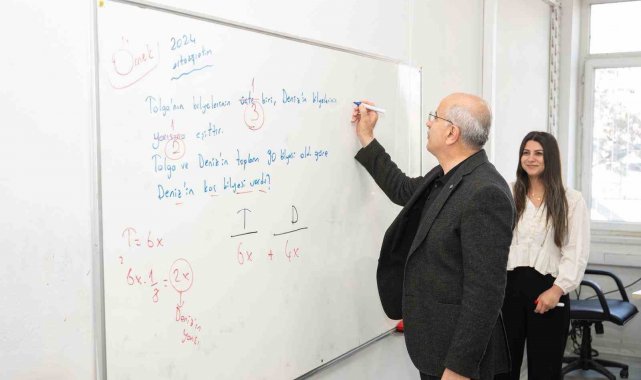 Örnek
2024
Tolga'nın bilyelerinin üçte biri, Deniz'in bilyelerinin
1
3
yarısına eşittir.
1
2
Tolga ve Deniz'in toplam 90 bilyesi old. göre
Deniz'in kaç bilyesi vardır?
T D
6x + 4x
T = 6x
6x · 1/3 = 2x
Deniz'in
yarısı